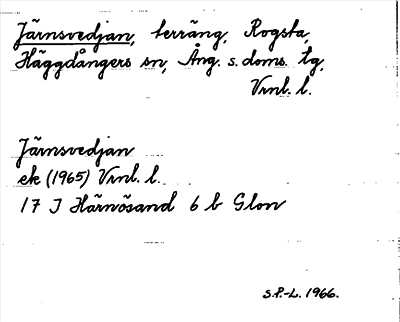 Järnsvedjan, terräng, Rogsta,
Häggdångers sn, Ång. s. doms. tg,
Vrnl. l.
Järnsvedjan
ek (1965) Vrnl. l.
17 J Härnösand 6 b Glon
S.P.-L. 1966.